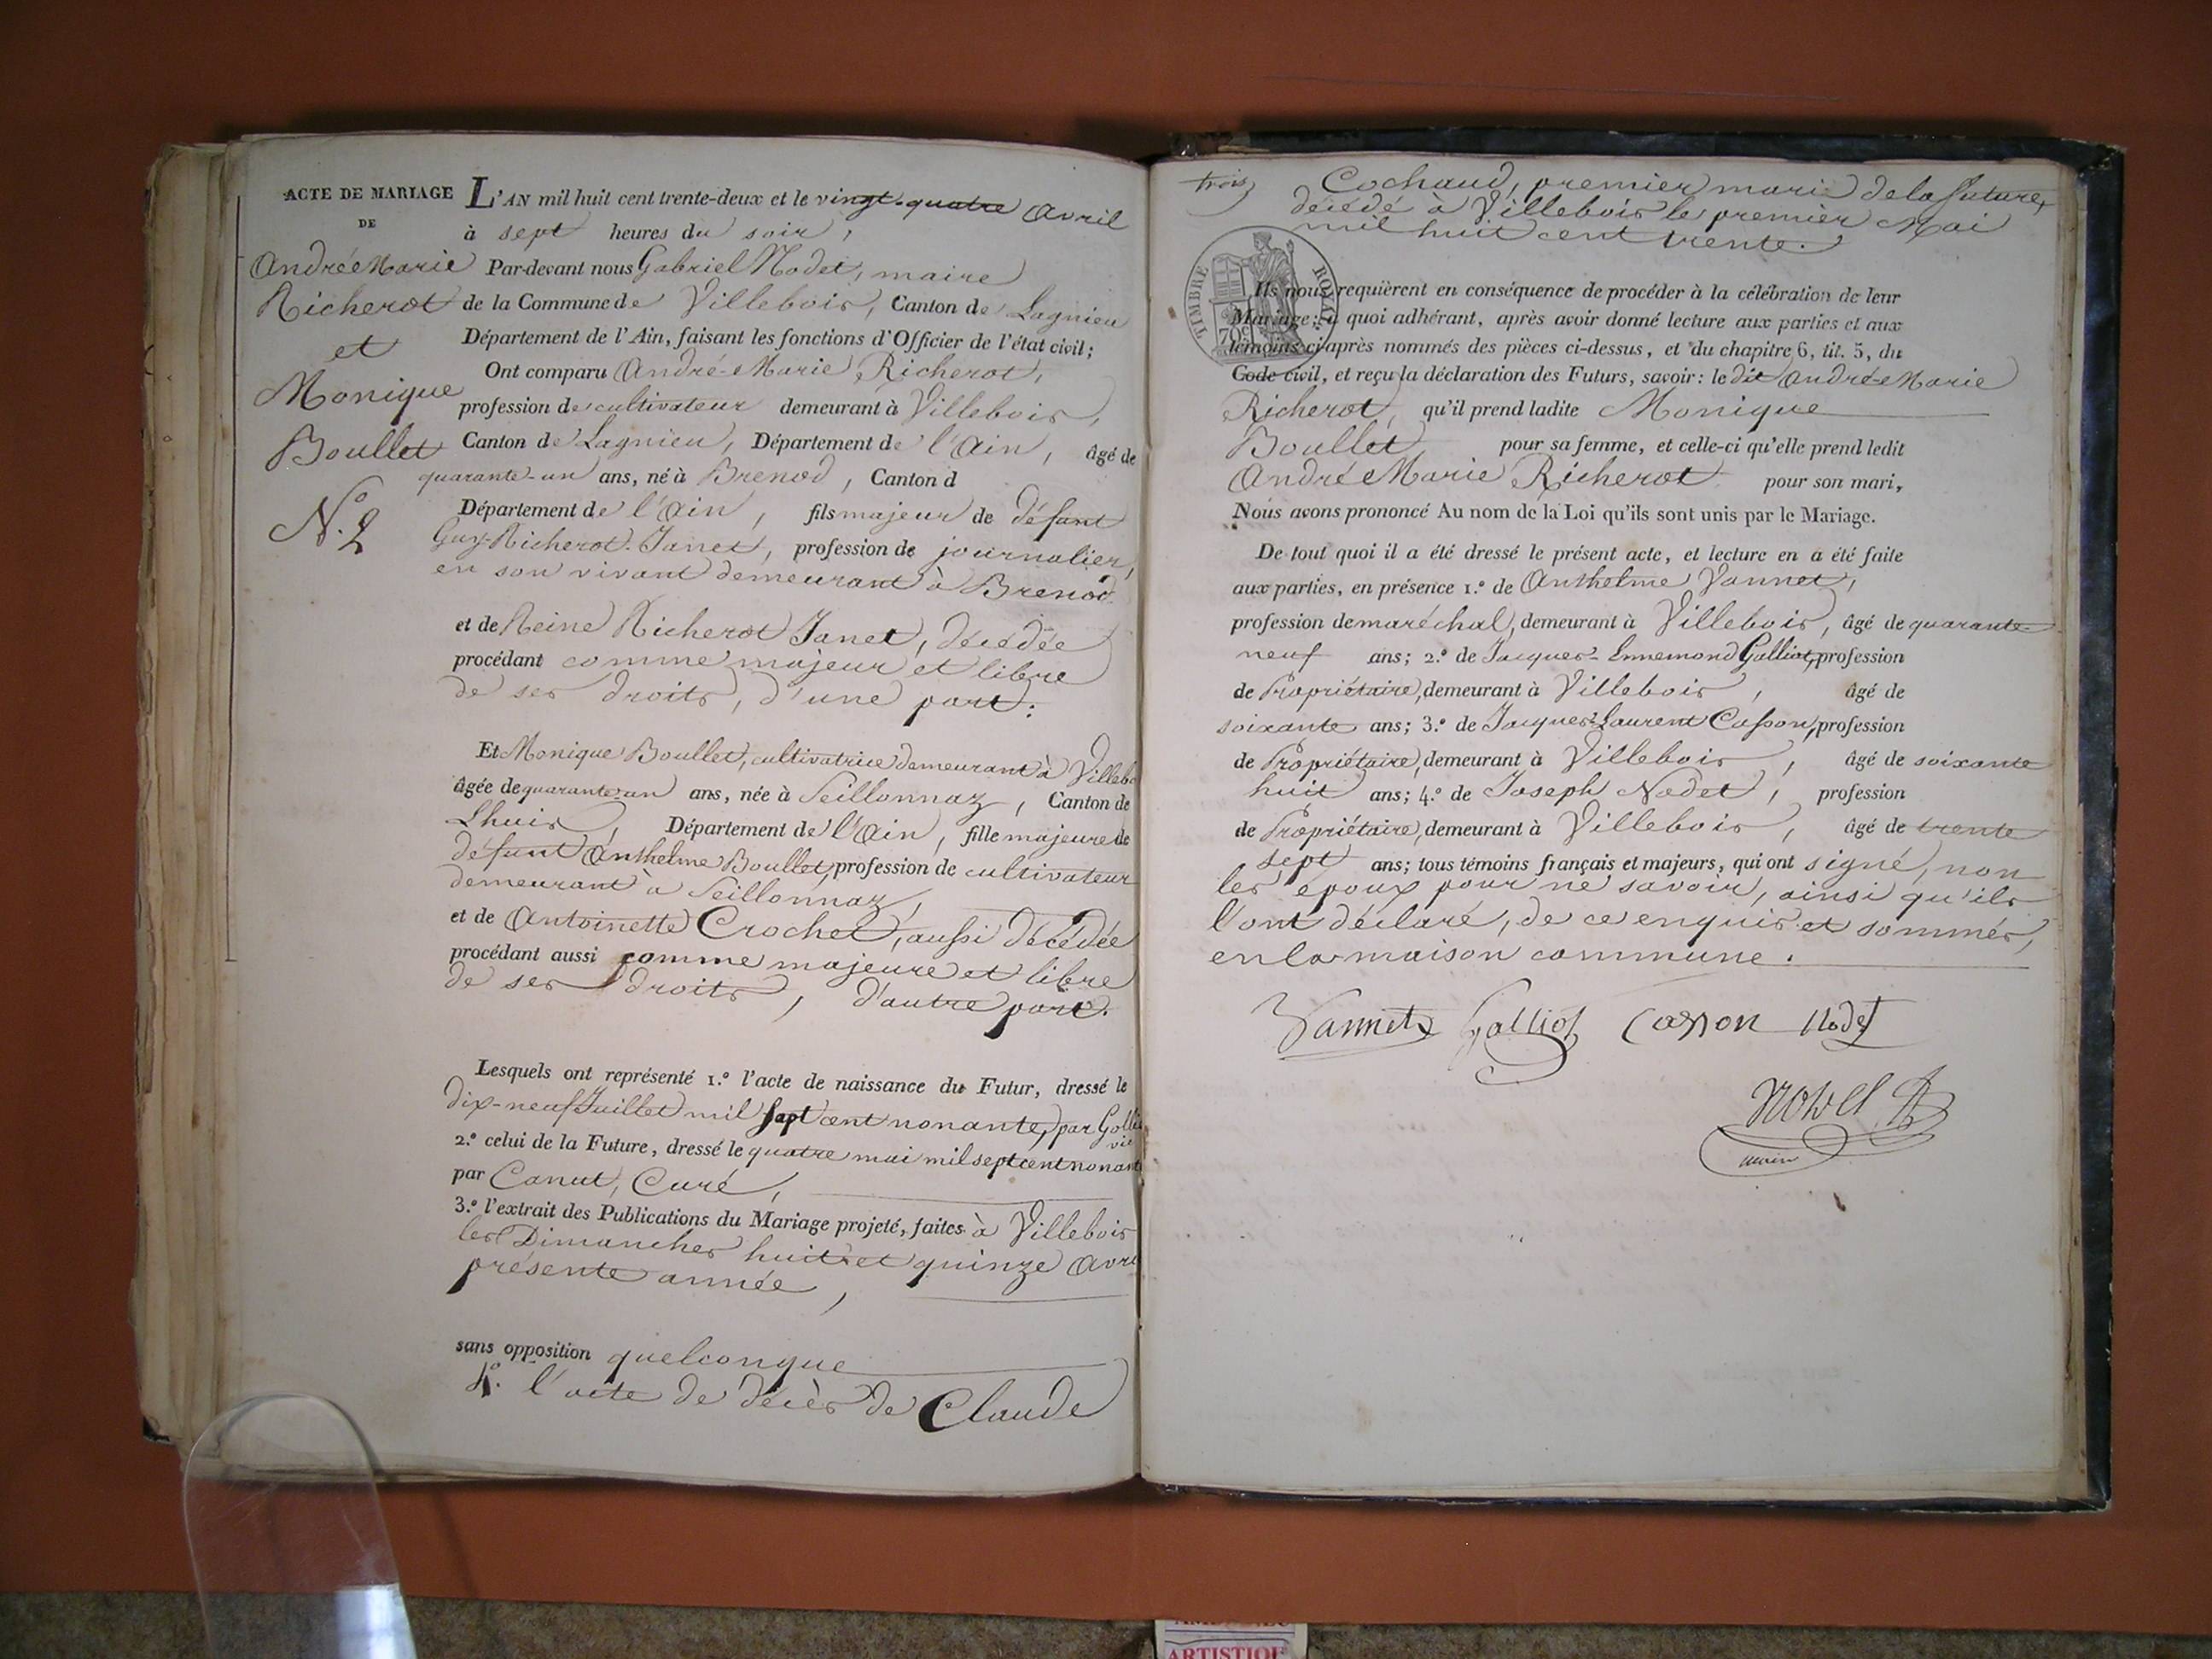 ACTE DE MARIAGE
DE
André Marie
Richerot
et
Monique
Boullet
N.º 2
L'AN mil huit cent trente-deux et le vingt-quatre Avril
à sept heures du soir,
Par-devant nous Gabriel Nodet, maire
de la Commune de Villebois, Canton de Lagnieu
Département de l'Ain, faisant les fonctions d'Officier de l'état civil;
Ont comparu André-Marie Richerot,
profession de cultivateur demeurant à Villebois,
Canton de Lagnieu, Département de l'Ain, âgé de
quarante-un ans, né à Brenod, Canton d
Département de l'Ain, fils majeur de défunt
Guy-Richerot-Janet, profession de journalier,
en son vivant demeurant à Brenod
et de Reine Richerot Janet, décédée
procédant comme majeur et libre
de ses droits, d'une part:
Et Monique Boullet, cultivatrice demeurant à Villebo
âgée de quarante-un ans, née à Seillonnaz, Canton de
Lhuis, Département de l'Ain, fille majeure de
défunt Anthelme Boullet, profession de cultivateur
demeurant à Seillonnaz,
et de Antoinette Crochet, aussi décédée
procédant aussi comme majeure et libre
de ses droits, d'autre part.
Lesquels ont représenté 1.º l'acte de naissance du Futur, dressé le
dix-neuf Juillet mil sept cent nonante, par
2.º celui de la Future, dressé le quatre mai mil sept cent nonant
par Canut, Curé,
3.º l'extrait des Publications du Mariage projeté, faites à Villebois
les Dimanches huit et quinze Avri
présente année,
sans opposition quelconque
4.º l'acte de décès de Claude
trois
Cochaud, premier mari de la future,
décédé à Villebois le premier Mai
mil huit cent trente.
TIMBRE ROYAL
70c
Ils nous requièrent en conséquence de procéder à la célébration de leur
Mariage; à quoi adhérant, après avoir donné lecture aux parties et aux
témoins ci-après nommés des pièces ci-dessus, et du chapitre 6, tit. 5, du
Code civil, et reçu la déclaration des Futurs, savoir: le dit André-Marie
Richerot, qu'il prend ladite Monique
Boullet pour sa femme, et celle-ci qu'elle prend ledit
André Marie Richerot pour son mari,
Nous avons prononcé Au nom de la Loi qu'ils sont unis par le Mariage.
De tout quoi il a été dressé le présent acte, et lecture en a été faite
aux parties, en présence 1.º de Anthelme Vannet,
profession de maréchal, demeurant à Villebois, âgé de quarante-
neuf ans; 2.º de Jacques-Ennemond Galliot, profession
de Propriétaire, demeurant à Villebois, âgé de
soixante ans; 3.º de Jacques-Laurent Casson, profession
de Propriétaire, demeurant à Villebois, âgé de soixante
huit ans; 4.º de Joseph Nodet, profession
de Propriétaire, demeurant à Villebois, âgé de trente
sept ans; tous témoins français et majeurs, qui ont signé, non
les époux pour ne savoir, ainsi qu'ils
l'ont déclaré, de ce enquis et sommés,
en la maison commune.
Vannet Galliot Casson Nodet
Nodet
maire
ARTISTIQUE